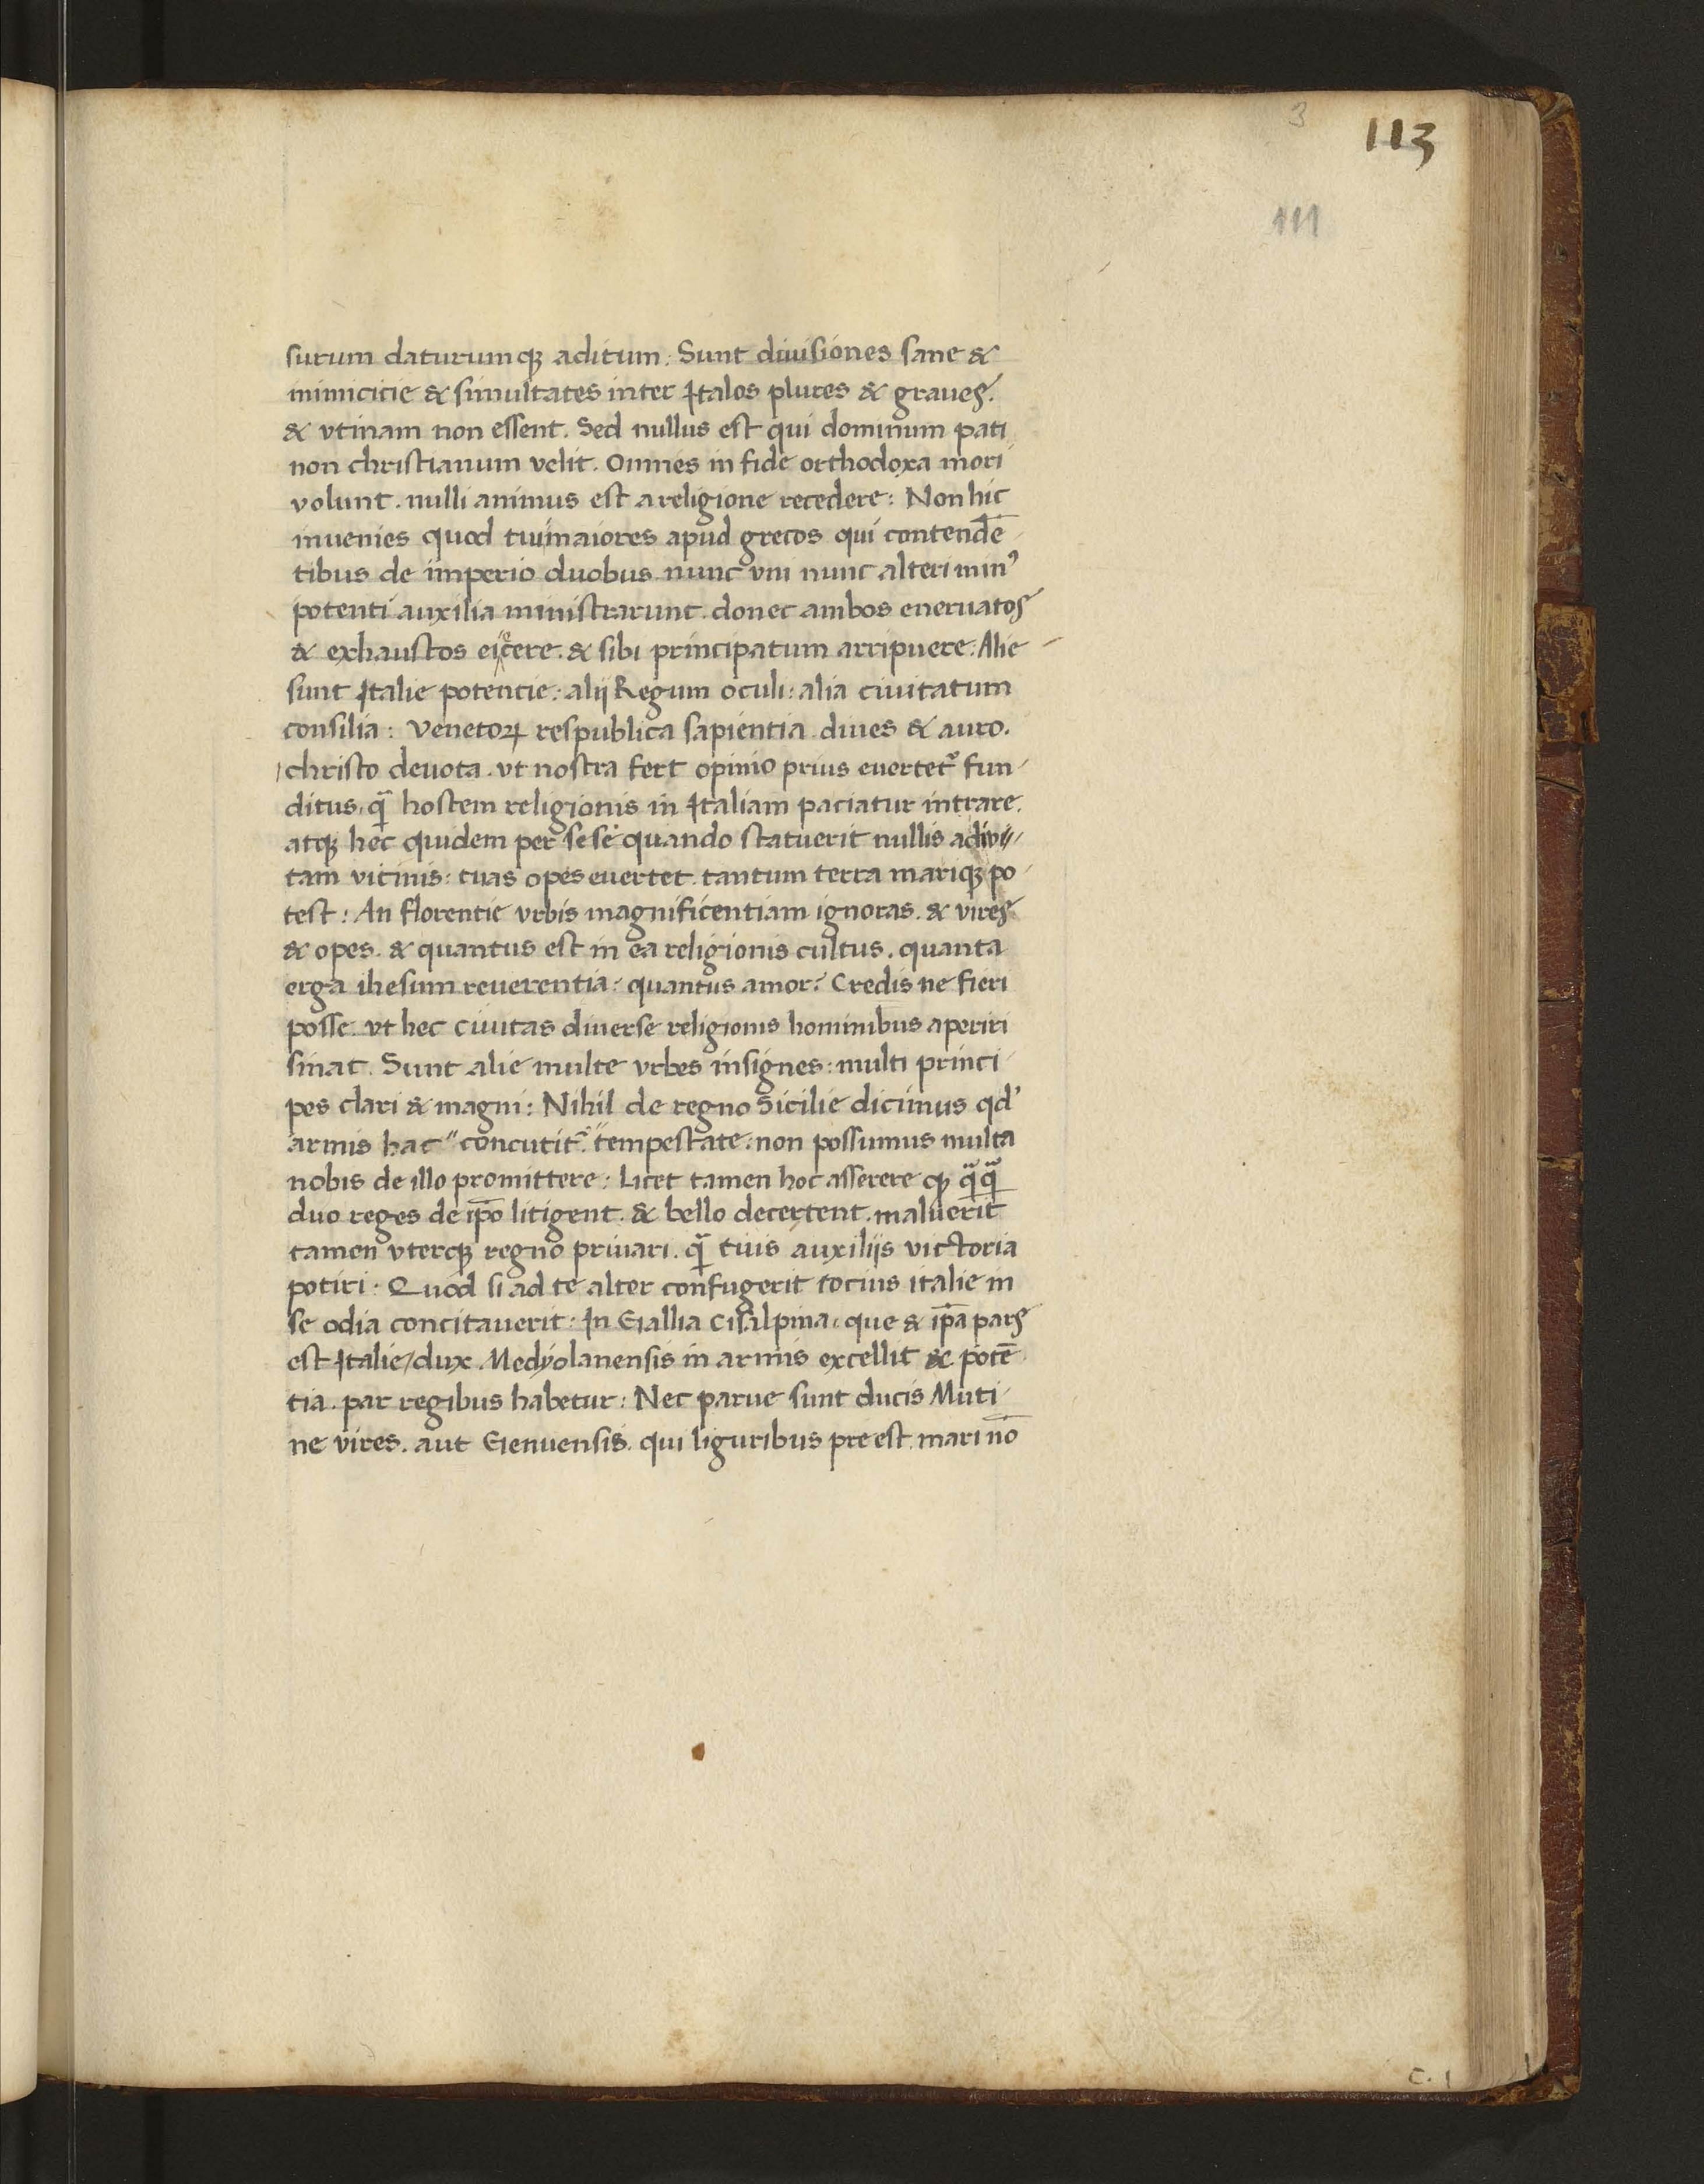 3
113
111
surum daturumqꝫ aditum: Sunt diuisiones sane &
inimicicie & simultates inter Italos plures & graues.
& vtinam non essent. Sed nullus est qui dominum pati
non christianum velit. Omnes in fide orthodoxa mori
volunt. nulli animus est a religione recedere: Non hic
inuenies quod tui maiores apud grecos qui contendē-
tibus de imperio duobus nunc vni nunc alteri minꝰ
potenti auxilia ministrarunt. donec ambos eneruatos
& exhaustos eiecere. & sibi principatum arripuere: Alie
sunt Italie potencie: alij Regum oculi: alia ciuitatum
consilia: Venetoꝝ respublica sapientia diues & auro.
christo deuota. vt nostra fert opinio prius euertet᷑ fun-
ditus. qᷓ hostem religionis in Italiam paciatur intrare.
atqꝫ hec quidem per sese quando statuerit nullis adiu-
tam vicinis: tuas opes euertet. tantum terra mariqꝫ po-
test: An florentie vrbis magnificentiam ignoras. & vires
& opes. & quantus est in ea religionis cultus. quanta
erga ihesum reuerentia: quantus amor? Credis ne fieri
posse. vt hec ciuitas diuerse religionis hominibus aperiri
sinat. Sunt alie multe vrbes insignes: multi princi-
pes clari & magni: Nihil de regno Sicilie dicimus qd'
armis hac "concutit᷑ "tempestate. non possumus multa
nobis de illo promittere: Licet tamen hoc asserere qꝫ qᷓqᷓ
duo reges de ip̄o litigent. & bello decertent. maluerit
tamen vterqꝫ regno priuari. qᷓ tuis auxilijs victoria
potiri: Quod si ad te alter confugerit tocius italie in
se odia concitauerit: In Gallia Cisalpina. que & ip̄a pars
est Italie/dux Medyolanensis in armis excellit & potē-
tia. par regibus habetur: Nec parue sunt ducis Muti-
ne vires. aut Genuensis. qui liguribus preest. mari nō
C. 1